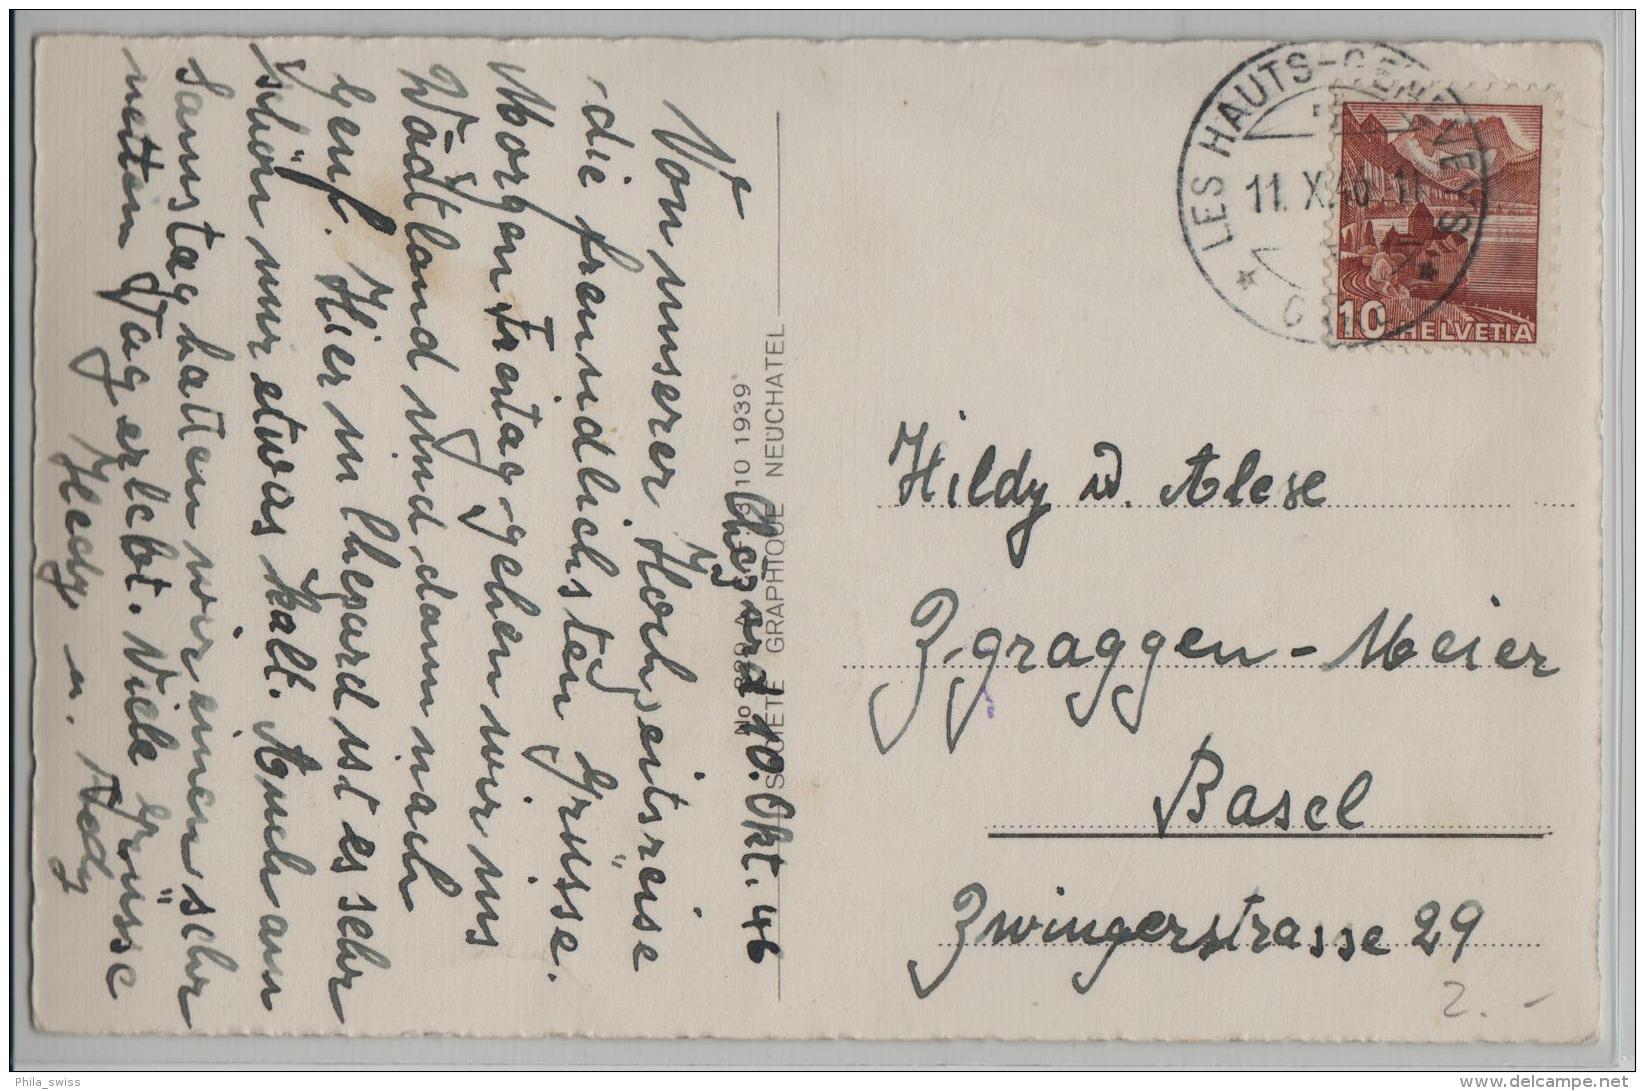 Chézard 10. Okt. 46
Von unserer Hochzeitsreise
die freundlichsten Grüsse.
Morgen Freitag gehen wir ins
Wadtland und dann nach
Genf. Hier in Chezard ist es sehr
schön nur etwas kalt. Auch am
Samstag hatten wir einen sehr
netten Tag erlebt. Viele Grüsse
Hedy u.
SOCIÉTÉ GRAPHIQUE NEUCHATEL
10 1939
LES HAUTS-GENEVEYS
11. X. 46. 11
10 HELVETIA
Hildy u.
Zgraggen-Meier
Basel
Zwingerstrasse 29
2.-
Phila_swiss
delcampe.net